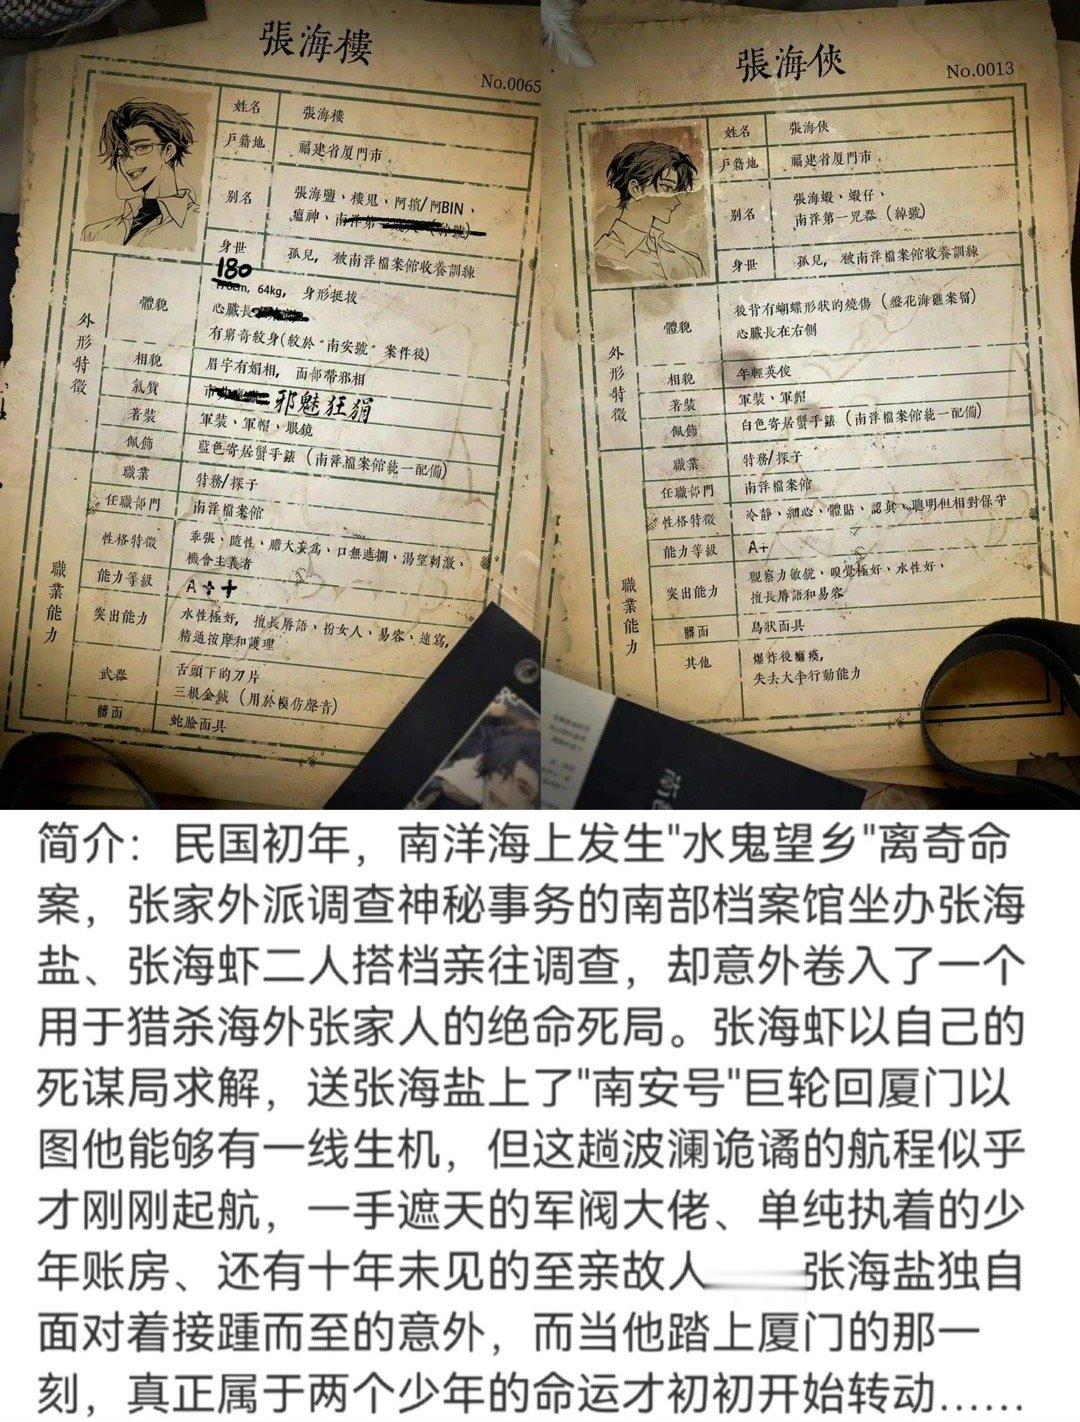 張海樓
No.0065
姓名 張海樓
戶籍地 福建省厦門市
別名 張海鹽、樓見、阿擯/阿BIN、
瘟神、南洋第 (綽號)
身世 孤兒,被南洋檔案館收養訓練
外形特徵
體貌 180
cm, 64kg, 身形挺拔
心臟長
有窮奇紋身(紋於“南安號”案件後)
相貌 眉宇有媚相,面部帶邪相
氣質 市 邪魅狂狷
著裝 軍裝、軍帽、眼鏡
佩飾 藍色寄居蟹手錶(南洋檔案館統一配備)
職業能力
職業 特務/探子
任職部門 南洋檔案館
性格特徵 乖張、隨性、膽大妄為、口無遮攔、渴望刺激、
機會主義者
能力等級 A++
突出能力 水性極好,擅長唇語、扮女人、易容、速寫,
精通按摩和護理
武器 舌頭下的刀片
三根金鉞(用於模仿聲音)
髒面 蛇臉面具
張海俠
No.0013
姓名 張海俠
戶籍地 福建省厦門市
別名 張海蝦、蝦仔、
南洋第一兇器(綽號)
身世 孤兒,被南洋檔案館收養訓練
外形特徵
體貌 後背有蝴蝶形狀的燒傷(盤花海礁案留)
心臟長在右側
相貌 年輕英俊
著裝 軍裝、軍帽
佩飾 白色寄居蟹手錶(南洋檔案館統一配備)
職業能力
職業 特務/探子
任職部門 南洋檔案館
性格特徵 冷靜、細心、體貼、認真、聰明但相對保守
能力等級 A+
突出能力 觀察力敏銳、嗅覺極好、水性好、
擅長唇語和易容
髒面 鳥狀面具
其他 爆炸後癱瘓,
失去大半行動能力
简介：民国初年，南洋海上发生"水鬼望乡"离奇命
案，张家外派调查神秘事务的南部档案馆坐办张海
盐、张海虾二人搭档亲往调查，却意外卷入了一个
用于猎杀海外张家人的绝命死局。张海虾以自己的
死谋局求解，送张海盐上了"南安号"巨轮回厦门以
图他能够有一线生机，但这趟波澜诡谲的航程似乎
才刚刚起航，一手遮天的军阀大佬、单纯执着的少
年账房、还有十年未见的至亲故人——张海盐独自
面对着接踵而至的意外，而当他踏上厦门的那一
刻，真正属于两个少年的命运才初初开始转动……